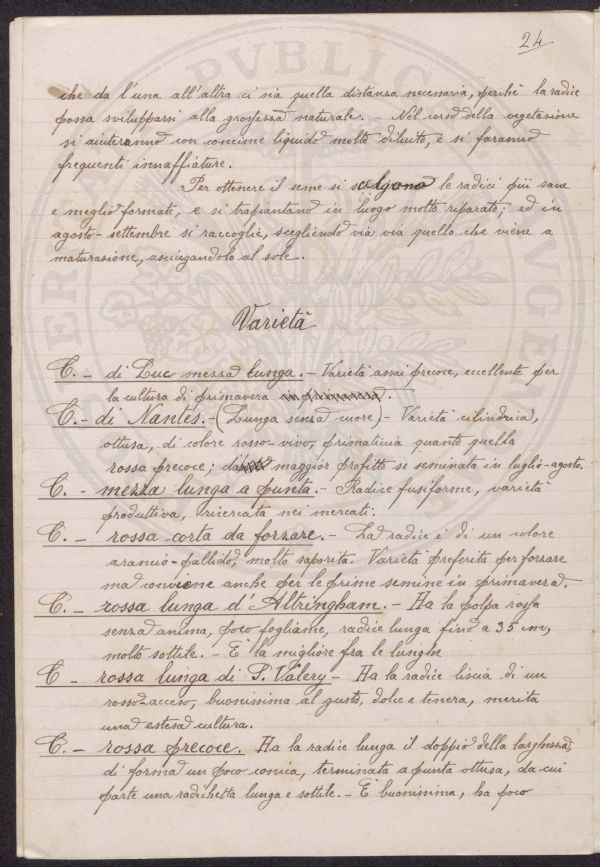 24
che da l'una all'altra ci sia quella distanza necessaria, perchè la radice
possa svilupparsi alla grossezza naturale. - Nel corso della vegetazione
si aiuteranno con concime liquido molto diluito, e si faranno
frequenti innaffiature.
Per ottenere il seme si scelgono le radici più sane
e meglio formate, e si trapiantano in luogo molto riparato; ed in
agosto-settembre si raccoglie, scegliendo via via quello che viene a
maturazione, asciugandolo al sole.
Varietà
C. - di Luc mezza lunga. - Varietà assai precoce, eccellente per
la cultura di primavera
C. - di Nantes. - (Lunga senza cuore) - Varietà cilindrica,
ottusa, di colore rosso-vivo, primaticcia quanto quella
rossa precoce; dà maggior profitto se seminata in luglio-agosto.
C. - mezza lunga a punta. - Radice fusiforme, varietà
produttiva, ricercata nei mercati.
C. - rossa corta da forzare. - La radice è di un colore
arancio-pallido, molto saporita. Varietà preferita per forzare
ma conviene anche per le prime semine in primavera.
C. - rossa lunga d'Altringham. - Ha la polpa rossa
senza anima, poco fogliame, radice lunga fino a 35 cm,
molto sottile. - È la migliore fra le lunghe
C. - rossa lunga di S. Valery - Ha la radice liscia di un
rosso-acceso, buonissima al gusto, dolce e tenera, merita
una estesa cultura.
C. - rossa precoce. Ha la radice lunga il doppio della larghezza,
di forma un poco conica, terminata a punta ottusa, da cui
parte una radichetta lunga e sottile. - È buonissima, ha poco